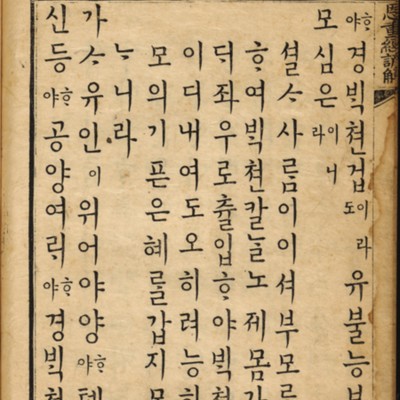 恩重經諺解
ᄒᆞ야경ᄇᆡᆨ쳔겁이라도유불능보
모심은이니라
셜ᄉᆞ사ᄅᆞᆷ이이셔부모
ᄒᆞ여ᄇᆡᆨ쳔칼ᄂᆞᆯ노졔몸가
ᄃᆡ좌우로츌입ᄒᆞ야ᄇᆡᆨ쳔
이디내여도오히려능히
모의기픈은혜ᄅᆞᆯ갑지
ᄂᆞ니라
가ᄉᆞ유인이위어야양ᄒᆞ야톄
신등ᄒᆞ야공양여ᄅᆡᄒᆞ야경ᄇᆡᆨ쳔